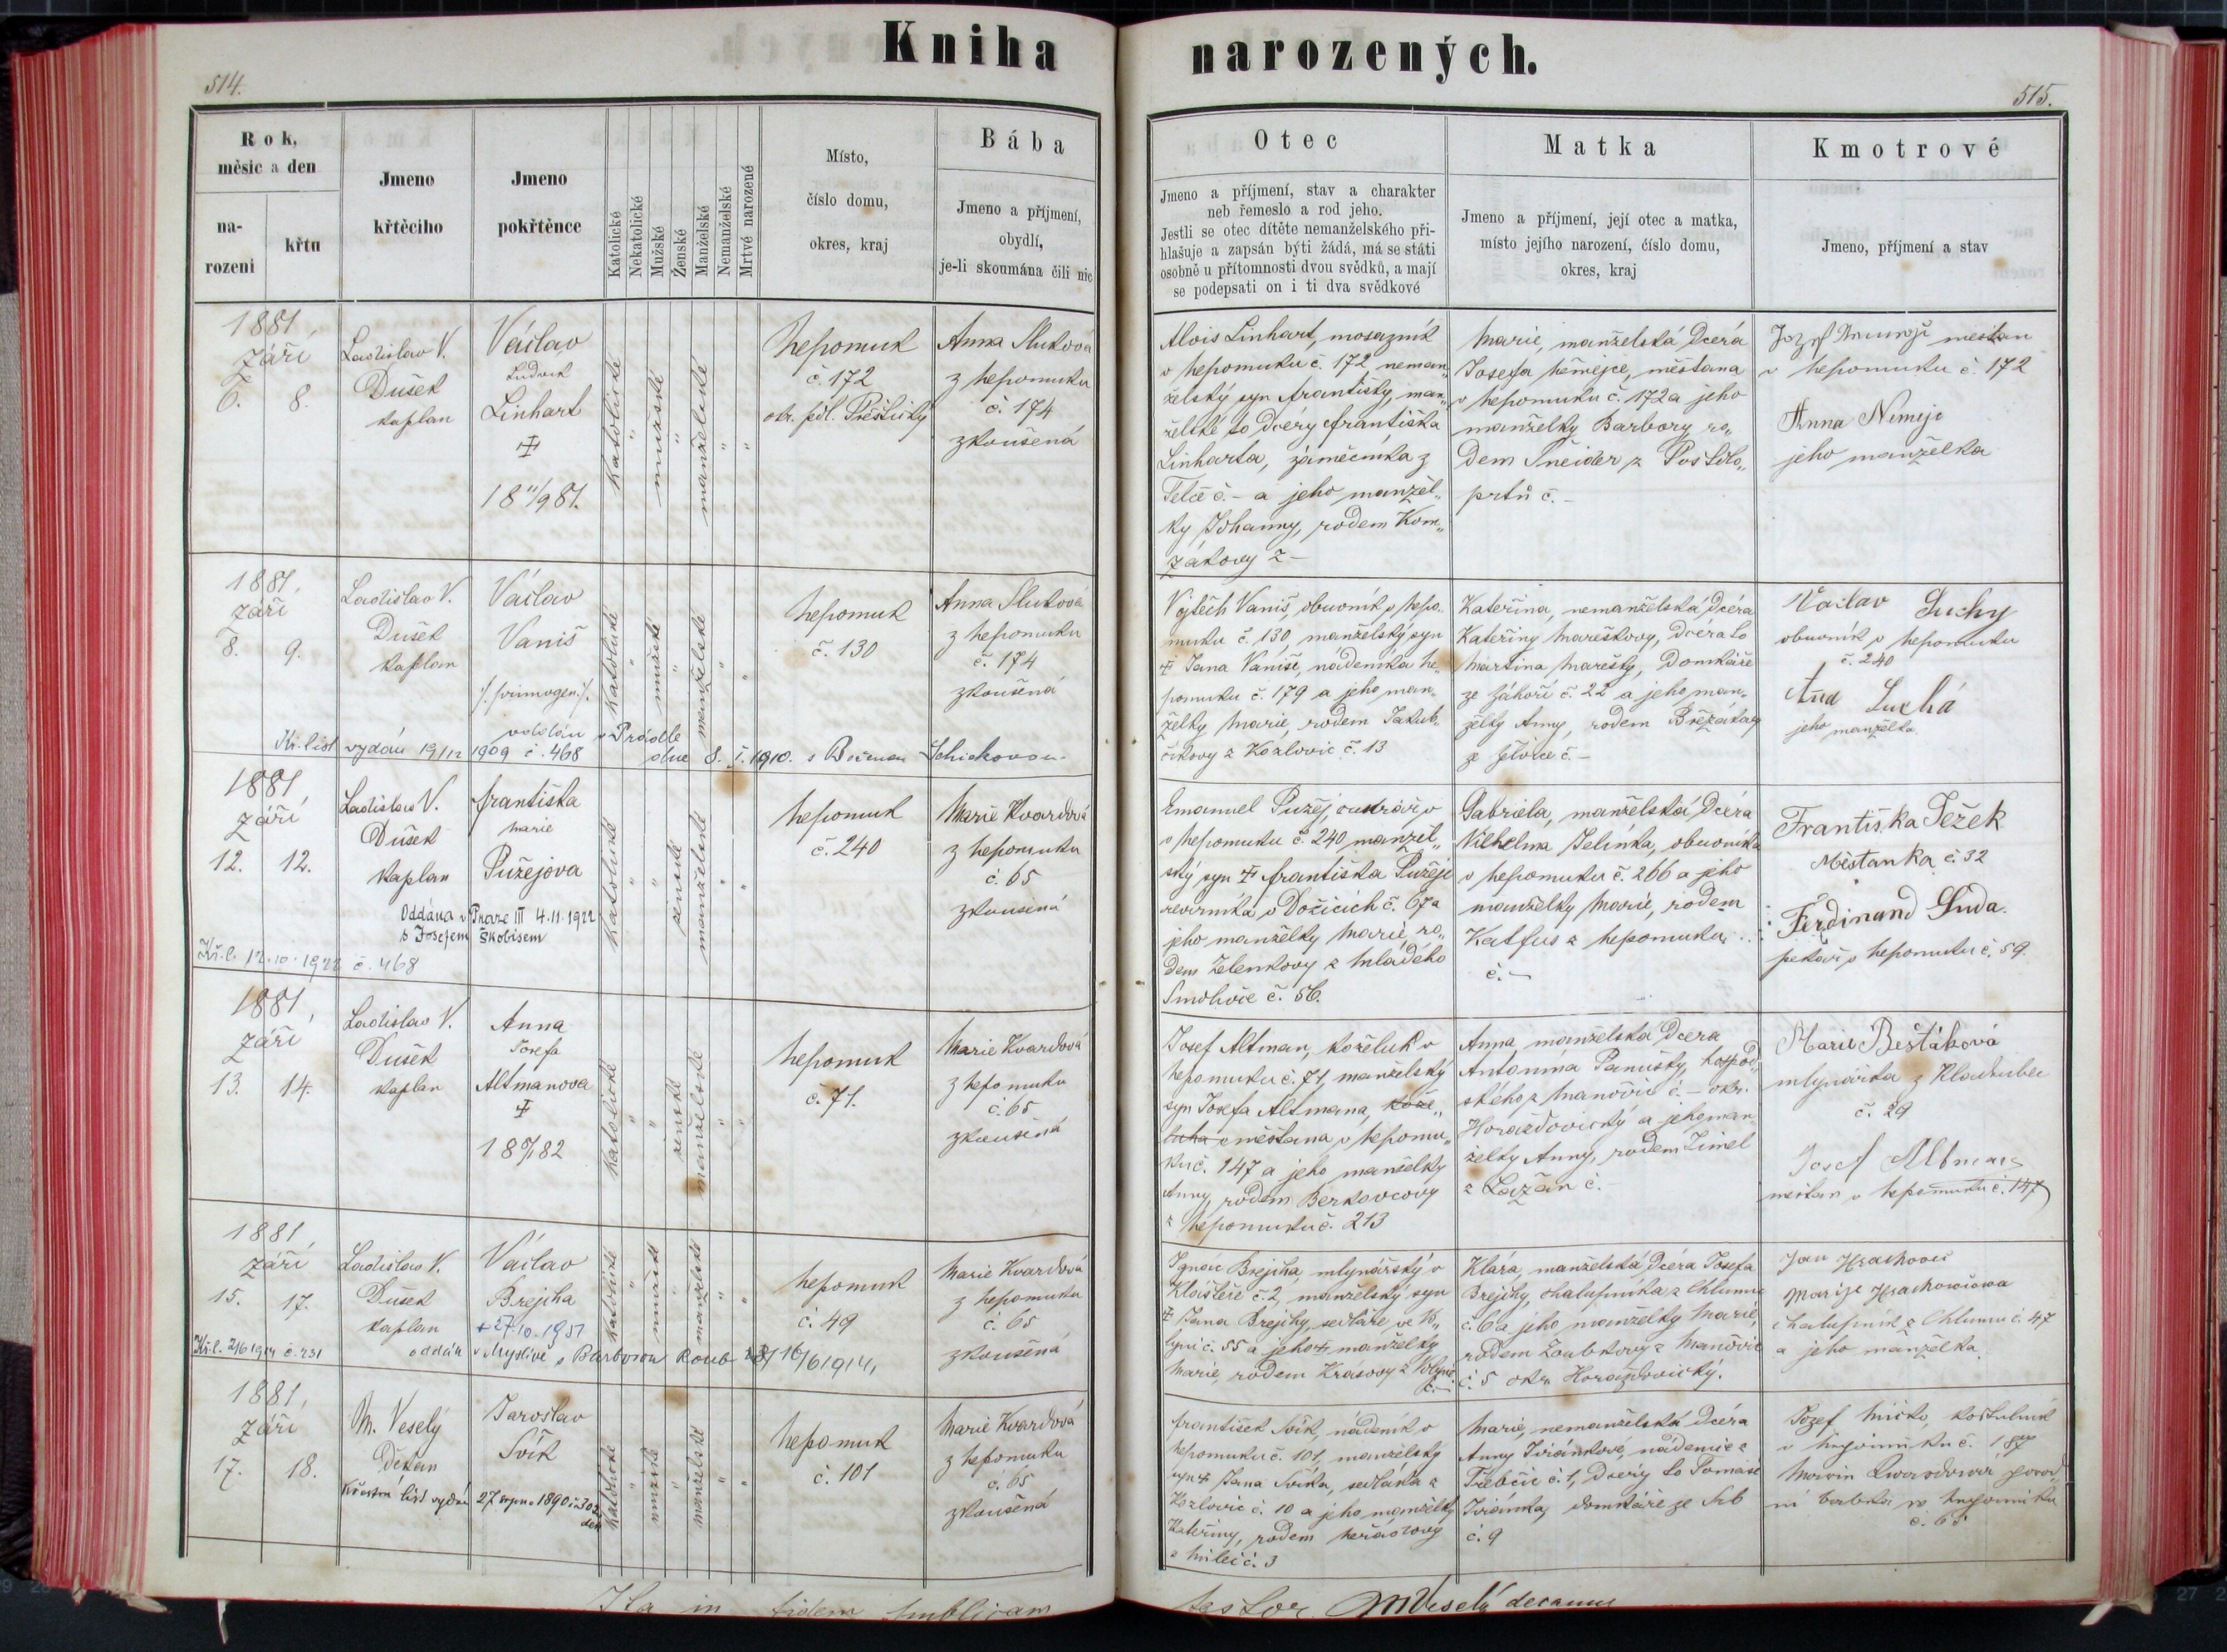 Kniha narozených.
514.
515.
Rok,
měsíc a den
na-
rození
křtu
Jmeno
křtěciho
Jmeno
pokřtěnce
Katolické
Nekatolické
Mužské
Ženské
Manželské
Nemanželské
Mrtvé narozené
Místo,
číslo domu,
okres, kraj
Bába
Jmeno a příjmení,
obydlí,
je-li skoumána čili nic
Otec
Jmeno a příjmení, stav a charakter
neb řemeslo a rod jeho.
Jestli se otec dítěte nemanželského při-
hlašuje a zapsán býti žádá, má se státi
osobně u přítomnosti dvou svědků, a mají
se podepsati on i ti dva svědkové
Matka
Jmeno a příjmení, její otec a matka,
místo jejího narození, číslo domu,
okres, kraj
Kmotrové
Jmeno, příjmení a stav
1881,
září
6.
8.
Ladislav V.
Dušek
kaplan
Václav
Ludvík
Linhart
18 11/9 81.
katolické
mužské
manželské
Nepomuk
č. 172
okr. pol. Přeštický
Anna Sluková
z Nepomuku
č. 174
zkoušená
Alois Linhart, mosazník
v Nepomuku č. 172 neman„
želský syn Františky, man„
želské to dcéry Františka
Linharta, zámečníka z
Telče č. – a jeho manžel„
ky Johanny, rodem Kom„
zákovy z –
Marie, manželská dcéra
Josefa Němejce, měšťana
v Nepomuku č. 172 a jeho
manželky Barbory ro„
dem Šneider z Postolo„
prtů č. –
měšťan
v Nepomuku č. 172
Anna Nemejc
jeho manželka
1881,
září
8.
9.
Ladislav V.
Dušek
kaplan
Václav
Vaniš
/. primogen. /.
katolické
mužské
manželské
Nepomuk
č. 130
Anna Sluková
z Nepomuku
č. 174
zkoušená
Vojtěch Vaniš, obuvník v Nepo„
muku č. 130, manželský syn
Jana Vaniše, nádeníka Ne„
pomuku č. 179 a jeho man„
želky Marie, rodem Jakub„
číkovy z Kozlovic č. 13
Kateřina, nemanželská dcéra
Kateřiny Mareškovy, dcéra to
Martina Marešky, domkáře
ze Záhoří č. 22 a jeho man„
želky Anny, rodem Břězákovy
č. –
Václav Suchy
obuvník v Nepomuku
č. 240
Anna Suchá
jeho manželka.
Kř. list vydán 19/12 1909 č. 468
oddán v Prádle
dne 8. I. 1910. s Boženou Schickovou
1881,
září
12.
12.
Ladislav V.
Dušek
kaplan
Františka
Marie
Pužejova
Oddána v Praze III 4.11.1922
s Josefem Škobisem
Kř. l. 12.10.1922 č. 468
katolické
ženské
manželské
Nepomuk
č. 240
Marie Kvardová
z Nepomuku
č. 65
zkoušená
Emanuel Pužej, cukrář v
v Nepomuku č. 240 manžel„
ský syn Františka Pužeje
revírníka v Dožicích č. 67 a
jeho manželky Marie ro„
dem Zelenkovy z Mladého
Smolivce č. 56.
Gabriela, manželská dcéra
Vilhelma Jelínka, obuvníka
v Nepomuku č. 266 a jeho
manželky Marie, rodem
Katfus z Nepomuku
č. –
Františka Ježek
Měšťanka č. 32
Ferdinand Suda.
pekař v Nepomuku č. 59.
1881,
září
13.
14.
Ladislav V.
Dušek
kaplan
Anna
Josefa
Altmanova
katolické
ženské
manželské
Nepomuk
č. 71.
Marie Kvardová
z Nepomuku
č. 65
zkoušená
Josef Altman, koželuh v
Nepomuku č. 71, manželský
syn Josefa Altmana, kože„
luha měšťana v Nepomu„
ku č. 147 a jeho manželky
Anny, rodem Berkovcovy
z Nepomuku č. 213
Anna, manželská dcera
Antonína Panušky, hospod„
ského z Maňovic č. – okr.
Horažďovický a jeho man„
želky Anny, rodem Zimel
z Lažan č. –
Marie Bešťáková
mlynářka z Kladrubce
č. 29
Josef Altman
měšťan v Nepomuku č. 147
1881,
září
15.
17.
Ladislav V.
Dušek
kaplan
Václav
Brejcha
+ 27.10.1951
Kř. l. 2/6 1914 č. 231
oddán v Myslívě s Barborou Koub 16/6 1914,
katolické
mužské
manželské
Nepomuk
č. 49
Marie Kvardová
z Nepomuku
č. 65
zkoušená
Ignác Brejcha, mlynářský v
Klášteře č. 2, manželský syn
Jana Brejchy, sedláře, ve Vo„
lyni č. 55 a jeho manželky
Marie, rodem Krásovy z Volyně
č. –
Klára, manželská dcéra Josefa
Brejchy, chalupníka z Chlumu
č. 6 a jeho manželky Marie,
rodem Zoubkovy z Maňovic
č. 5 okr. Horažďovický.
Jan Hrachovec
Marije Hrachowcowa
chalupník z Chlumu č. 47
a jeho manželka.
1881,
září
17.
18.
M. Veselý
Děkan
Jaroslav
Sýk
Křestní list vydán 27 srpna 1890 č. 302
katolické
mužské
manželské
Nepomuk
č. 101
Marie Kvardová
z Nepomuku
č. 65
zkoušená
František Sýk, nádeník v
Nepomuku č. 101, manželský
syn Jana Sýka, sedláka z
Kozlovic č. 10 a jeho manželky
Kateřiny, rodem
z Milčí č. 3
Marie, nemanželská dcéra
Anny nádenice z
Třebčic č. 1, dcery to Tomáše
domkáře ze Srb
č. 9
Jozef Mičko, kostelník
v Nepomuku č. 187
č. 65
Ita in fidem publicam
testor MVeselý decanus